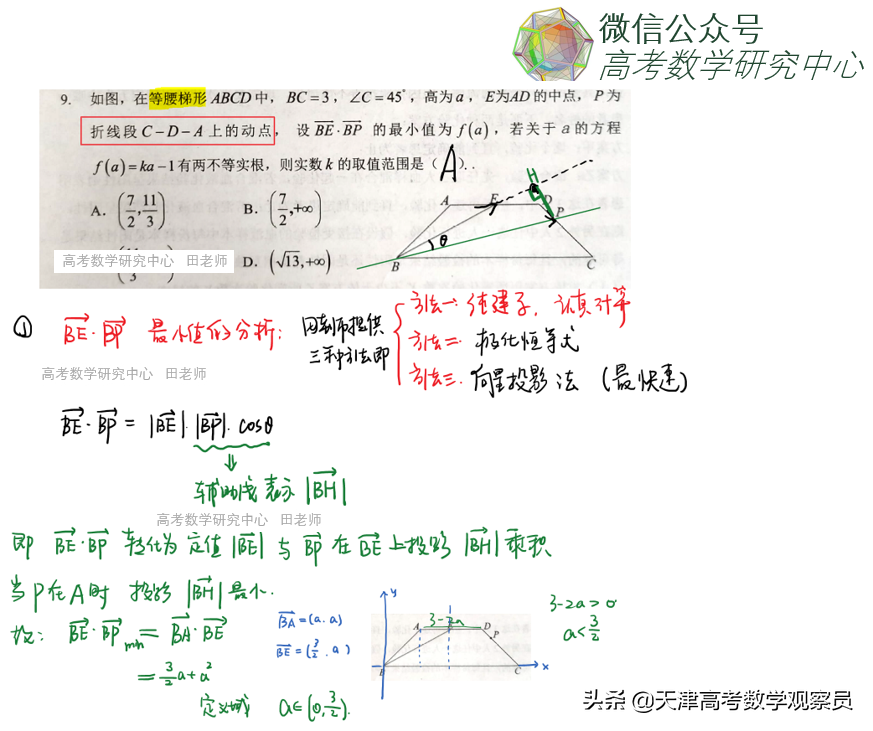 微信公众号
高考数学研究中心
9. 如图，在等腰梯形 ABCD 中，BC=3，∠C=45°，高为a，E为AD的中点，P为
折线段 C-D-A 上的动点，设 BE·BP 的最小值为 f(a)，若关于 a 的方程
f(a)=ka-1有两不等实根，则实数k的取值范围是（ A ）.
A. (7/2, 11/3) B. (7/2, +∞)
高考数学研究中心 田老师 D. (√13, +∞)
A E D P
B θ C
① BE·BP 最小值的分析：
田老师提供
三种方法即
方法一：建系，认真计算
方法二：极化恒等式
方法三：向量投影法（最快速）
高考数学研究中心 田老师
BE·BP = |BE|·|BP|·cosθ
辅助线表示 |BH|
高考数学研究中心 田老师
即 BE·BP 转化为定值 |BE| 与 BP 在 BE 上投影 |BH| 乘积
当P在A时 投影 |BH| 最小.
故：BE·BP min = BA·BE
= 3/2 a + a²
定义域 a∈(0, 3/2).
BA=(a,a)
BE=(3/2,a)
y
3-2a
A D P
B C x
3-2a>0
a<3/2
头条 @天津高考数学观察员